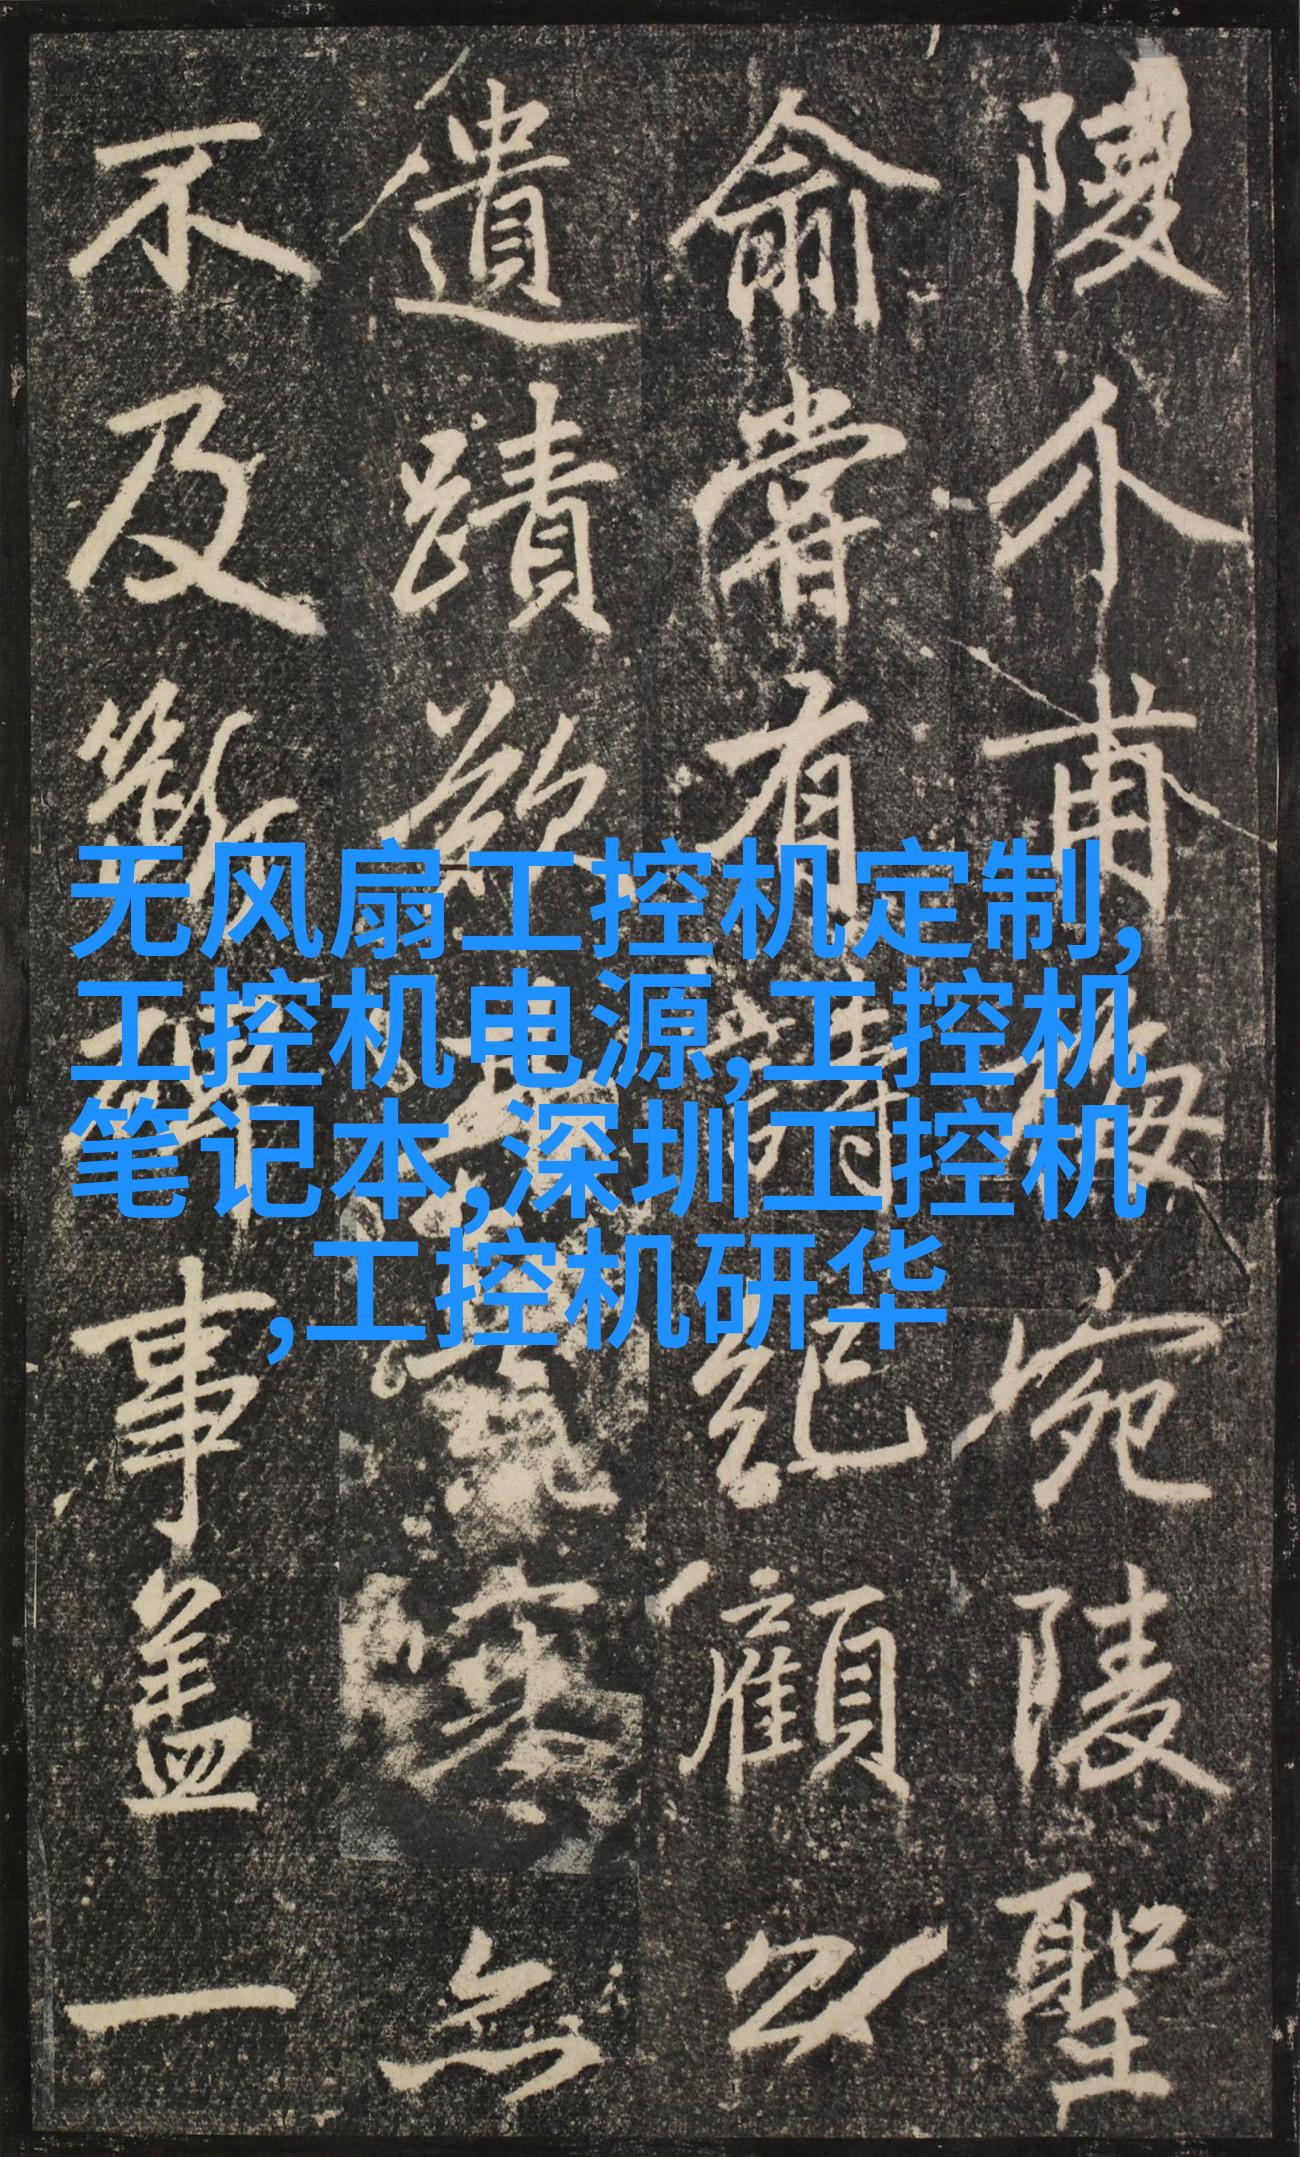 陵介甫梅宛陵聖
俞嘗有詩紀顧公
遺蹟歟
寒無
不及斷碑事蓋一
无风扇工控机定制,
工控机电源,工控机
笔记本,深圳工控机
,工控机研华